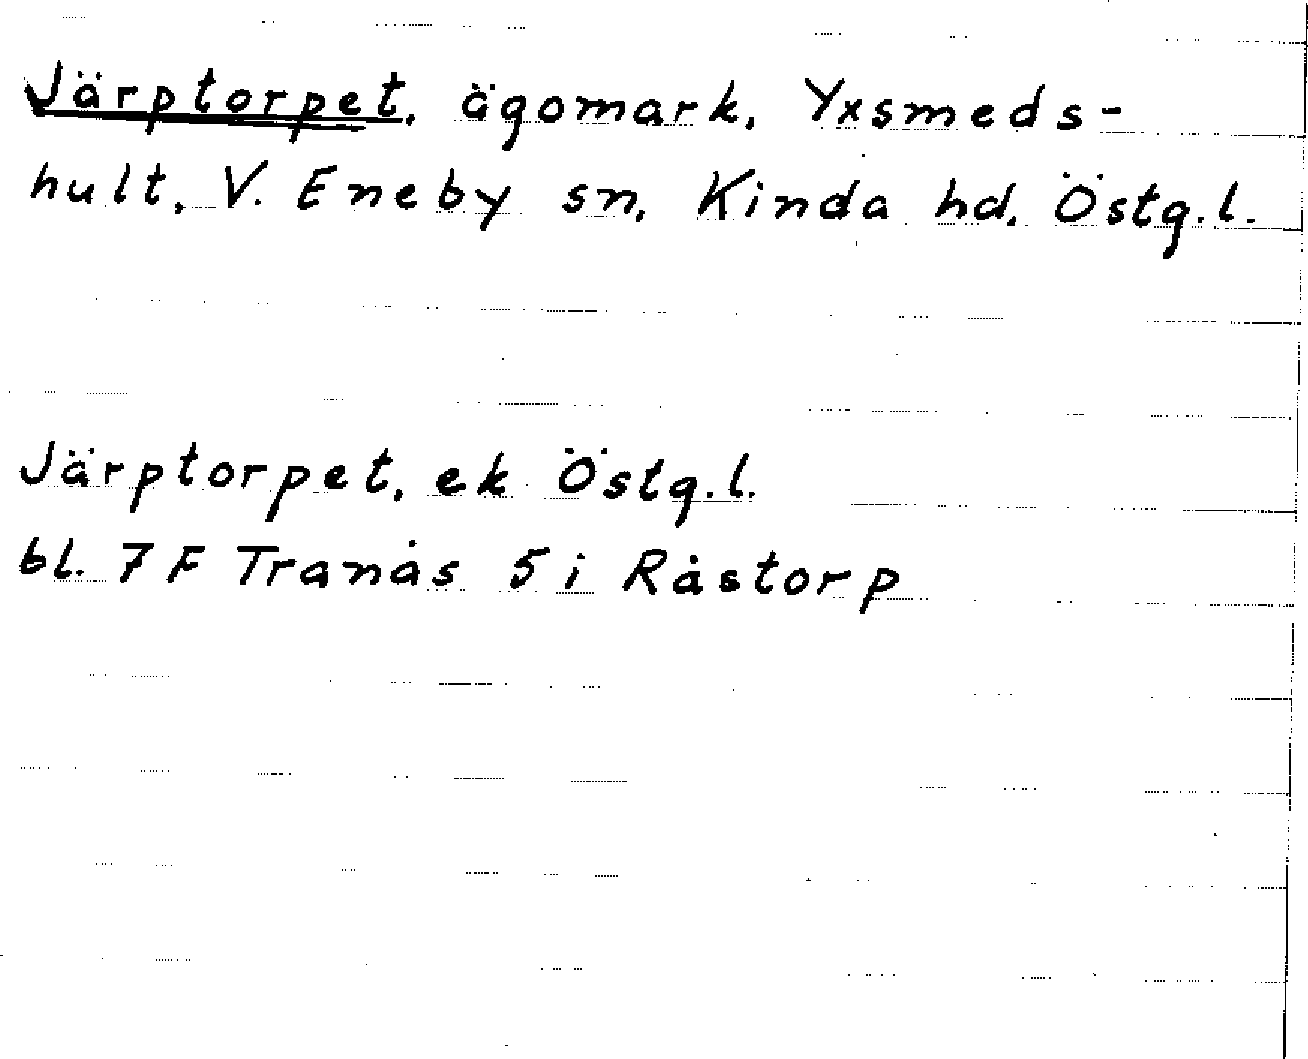 Järptorpet, ägomark, Yxsmeds-
hult, V. Eneby sn, Kinda hd, Östg.l.
Järptorpet, ek Östg.l.
bl. 7F Tranås 5i Råstorp